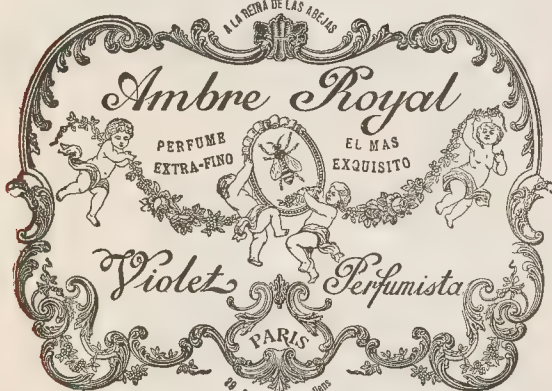 A LA REINA DE LAS ABEJAS
Ambre Royal
PERFUME
EXTRA-FINO
EL MAS
EXQUISITO
Violet Perfumista
PARIS